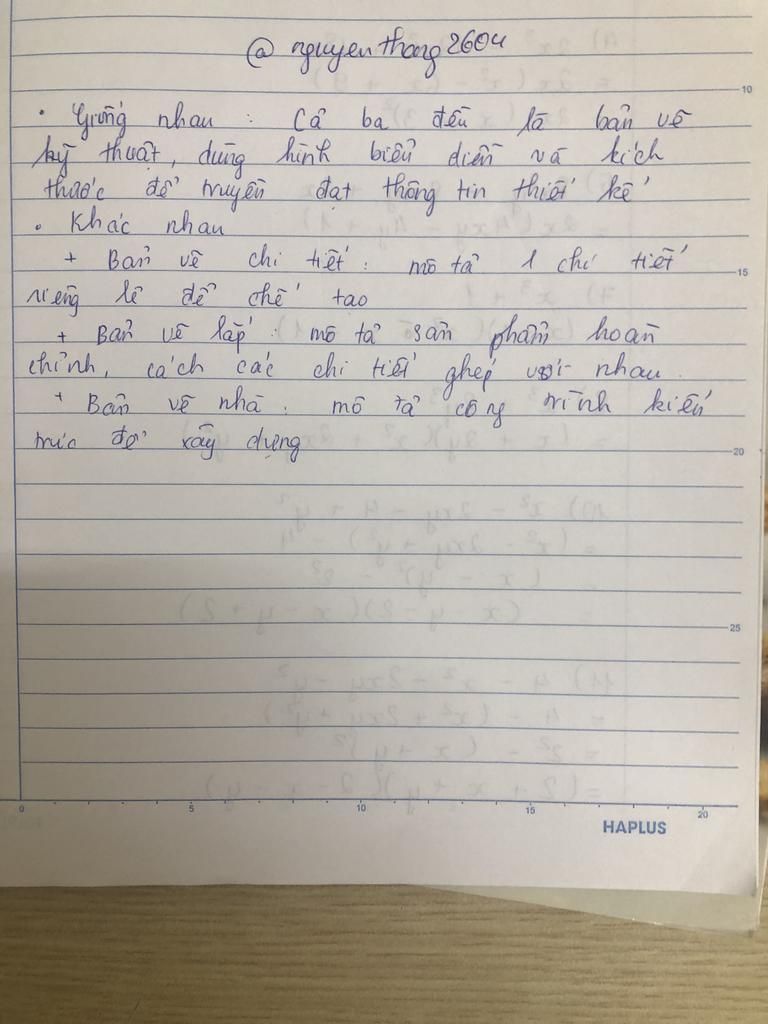 @ nguyenthang2604
10
• Giống nhau : Cả ba đều là bản vẽ
kỹ thuật, dùng hình biểu diễn và kích
thước để truyền đạt thông tin thiết kế
• Khác nhau
+ Bản vẽ chi tiết : mô tả 1 chi tiết
15
riêng lẻ để chế tạo
+ Bản vẽ lắp : mô tả sản phẩm hoàn
chỉnh, cách các chi tiết ghép với nhau.
+ Bản vẽ nhà : mô tả công trình kiến
trúc để xây dựng
20
25
0 5 10 15 20
HAPLUS